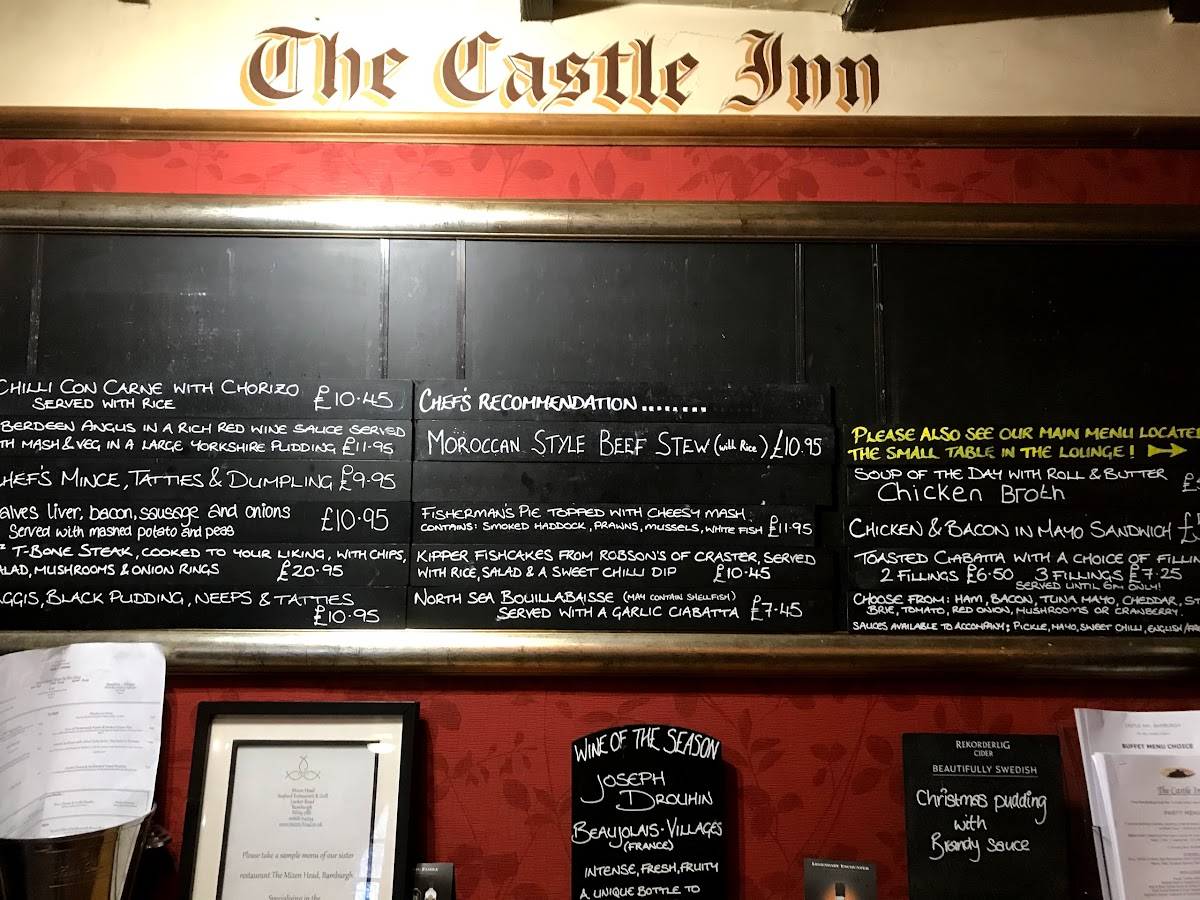 The Castle Inn
CHILLI CON CARNE WITH CHORIZO £10.45
SERVED WITH RICE
BERDEEN ANGUS IN A RICH RED WINE SAUCE SERVED
TH MASH & VEG IN A LARGE YORKSHIRE PUDDING £11.95
HEF'S MINCE, TATTIES & DUMPLING £9.95
alves liver, bacon, sausage and onions £10.95
Served with mashed potato and peas
T-BONE STEAK, COOKED TO YOUR LIKING, WITH CHIPS,
ALAD, MUSHROOMS & ONION RINGS £20.95
AGGIS, BLACK PUDDING, NEEPS & TATTIES
£10.95
CHEF'S RECOMMENDATION ........
MOROCCAN STYLE BEEF STEW (with Rice) £10.95
FISHERMAN'S PIE TOPPED WITH CHEESY MASH
CONTAINS: SMOKED HADDOCK, PRAWNS, MUSSELS, WHITE FISH £11.95
KIPPER FISHCAKES FROM ROBSON'S OF CRASTER, SERVED
WITH RICE, SALAD & A SWEET CHILLI DIP £10.45
NORTH SEA BOUILLABAISSE (MAY CONTAIN SHELLFISH)
SERVED WITH A GARLIC CIABATTA £7.45
PLEASE ALSO SEE OUR MAIN MENU LOCATE
THE SMALL TABLE IN THE LOUNGE!
SOUP OF THE DAY WITH ROLL & BUTTER
Chicken Broth
CHICKEN & BACON IN MAYO SANDWICH £
TOASTED CIABATTA WITH A CHOICE OF FILLIN
2 FILLINGS £6.50 3 FILLINGS £7.25
SERVED UNTIL 6PM ONLY!
CHOOSE FROM: HAM, BACON, TUNA MAYO, CHEDDAR, ST
BRIE, TOMATO, RED ONION, MUSHROOMS OR CRANBERRY.
SAUCES AVAILABLE TO ACCOMPANY; PICKLE, MAYO, SWEET CHILLI, ENGLISH/FR
Mizen Head
Please take a sample menu of our sister
restaurant The Mizen Head, Bamburgh.
Specialising in the
WINE OF THE SEASON
JOSEPH
DROUHIN
BEAUJOLAIS-VILLAGES
(FRANCE)
INTENSE, FRESH, FRUITY
A UNIQUE BOTTLE TO
LEGENDARY ENCOUNTER
REKORDERLIG
CIDER
BEAUTIFULLY SWEDISH
Christmas pudding
with
Brandy sauce
CASTLE INN, BAMBURGH
BUFFET MENU CHOICE
The Castle In
PARTY MENU